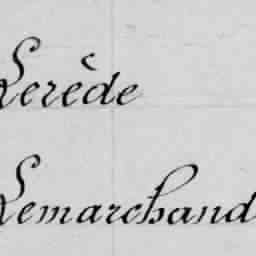 Lerède
Lemarchand